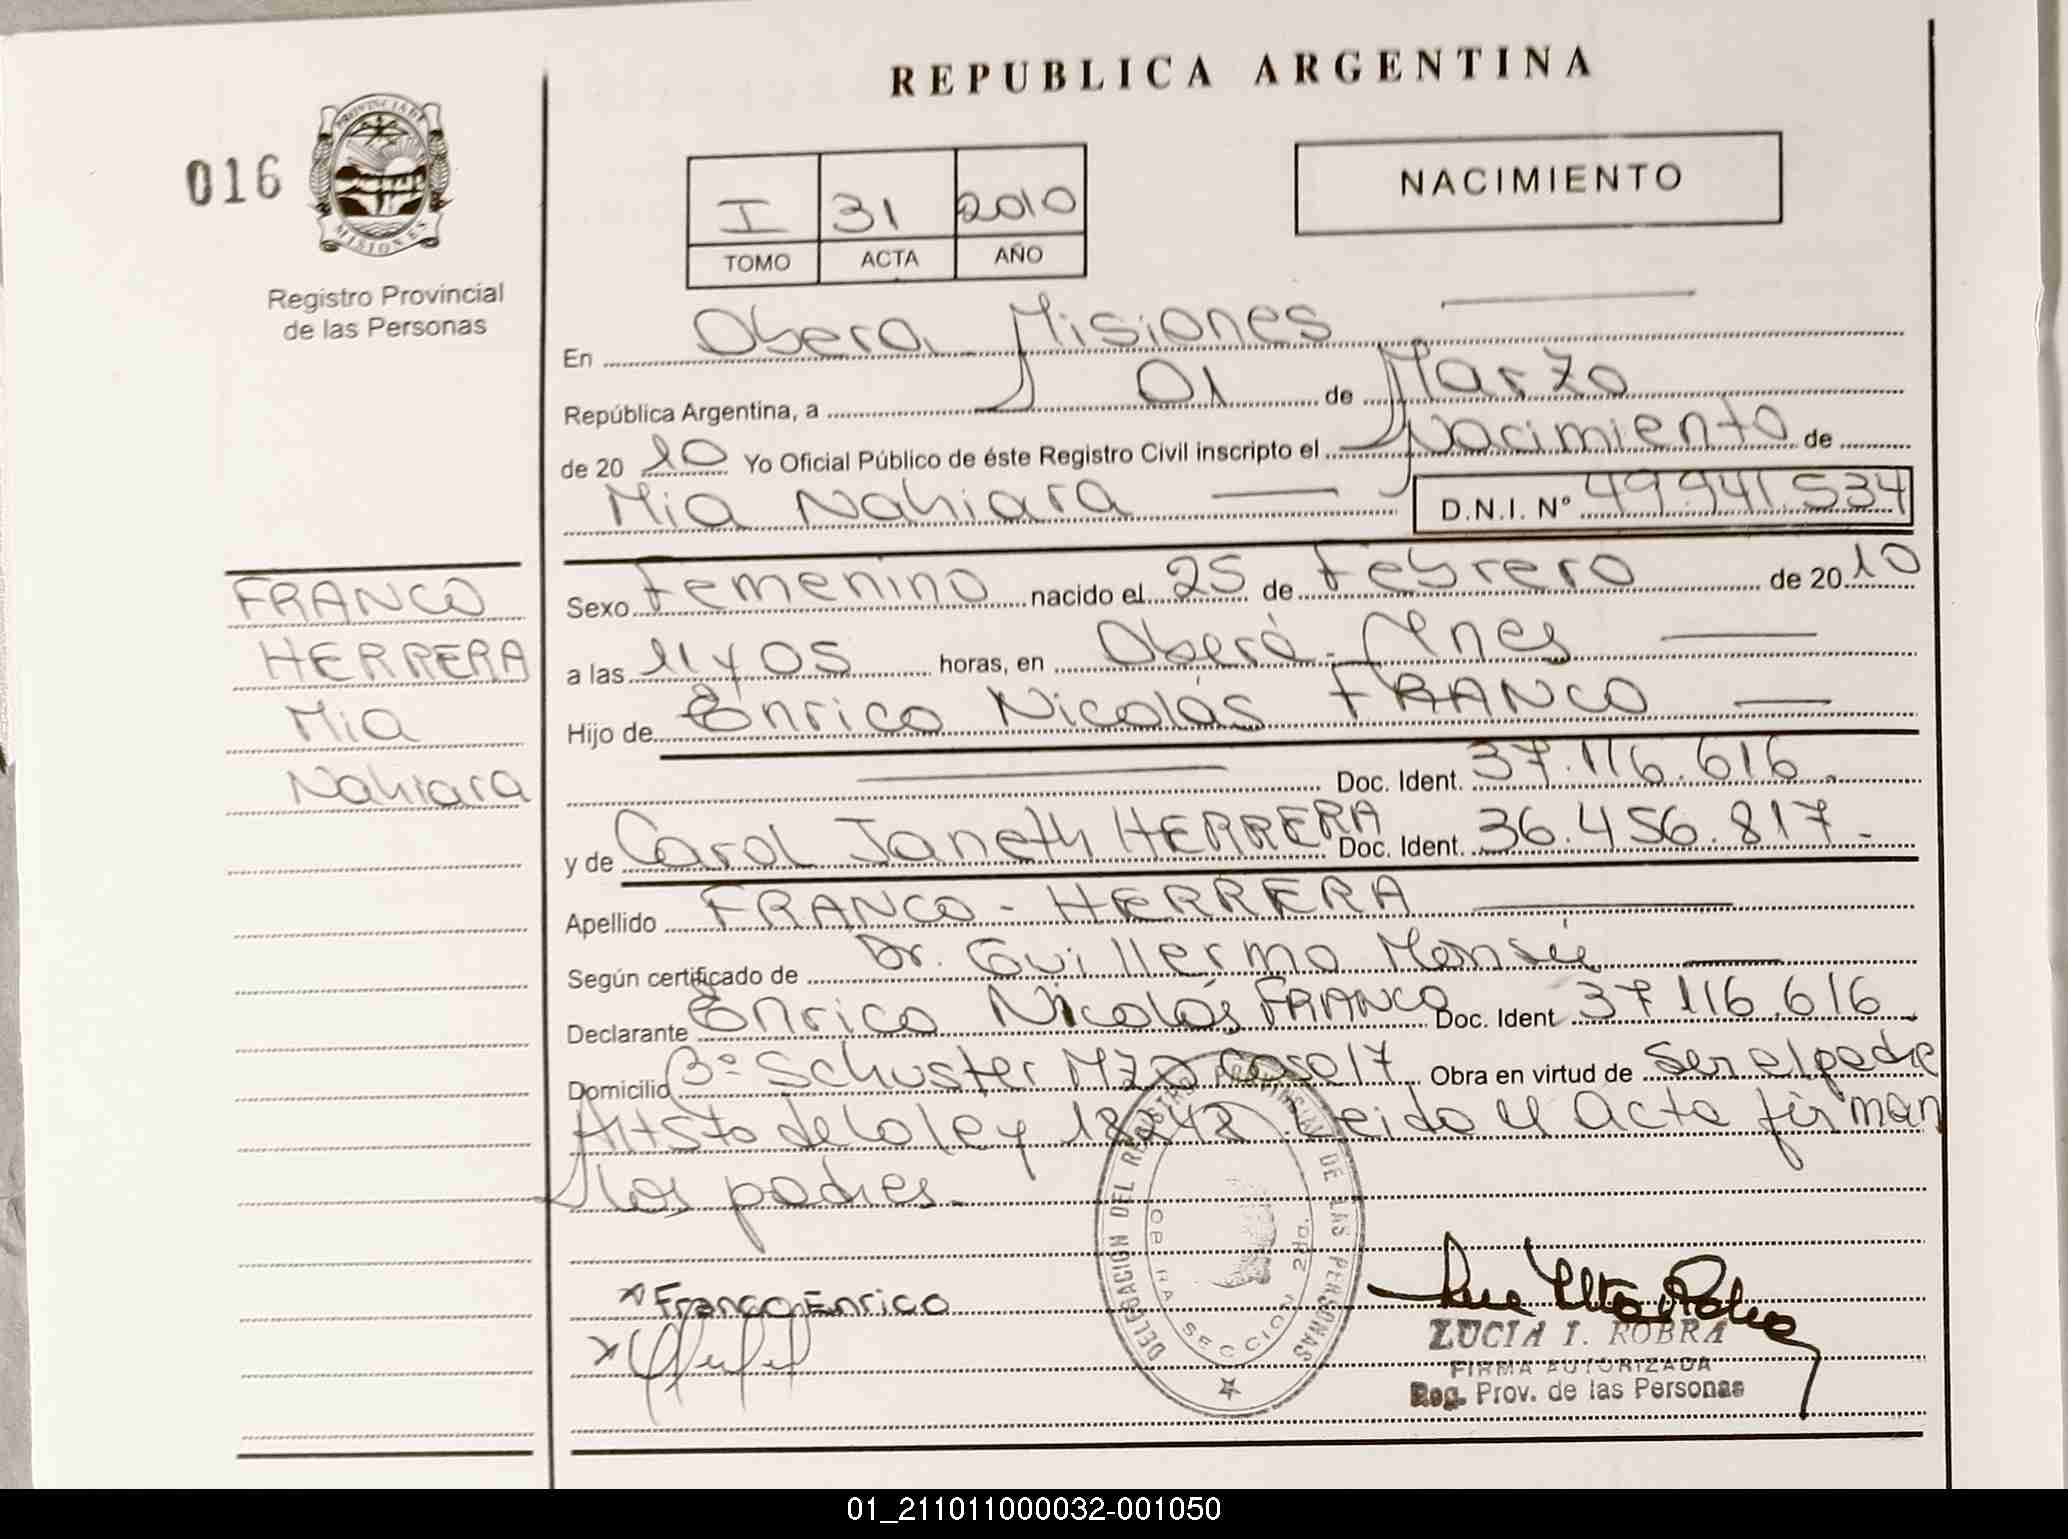 REPUBLICA ARGENTINA
016
PROVINCIA DE
MISIONES
Registro Provincial
de las Personas
I 31 2010
TOMO ACTA AÑO
NACIMIENTO
En Obera, Misiones
República Argentina, a 01 de Marzo
de 20 10 Yo Oficial Público de éste Registro Civil inscripto el Nacimiento de
Mia Nahiara D.N.I. Nº 49.941.534
FRANCO
HERRERA
Mia
Nahiara
Sexo Femenino nacido el 25 de Febrero de 20 10
a las 11 y 05 horas, en Oberá - Mnes
Hijo de Enrico Nicolás FRANCO
Doc. Ident. 37.116.616.
y de Carol Janeth HERRERA Doc. Ident. 36.456.817.-
Apellido FRANCO - HERRERA
Según certificado de Dr. Guillermo
Declarante Enrico Nicolás FRANCO Doc. Ident 37 116.616.
Domicilio Bº Schuster Mz casa 17 Obra en virtud de ser el padre
de la ley 18248 Leida el acta firman
los padres.-
x Franco Enrico
DELEGACION DEL REGISTRO PROVINCIAL DE LAS PERSONAS
OBERA SECCION 2da.
LUCIA I. ROBRA
FIRMA AUTORIZADA
Reg. Prov. de las Personas
01_211011000032-001050